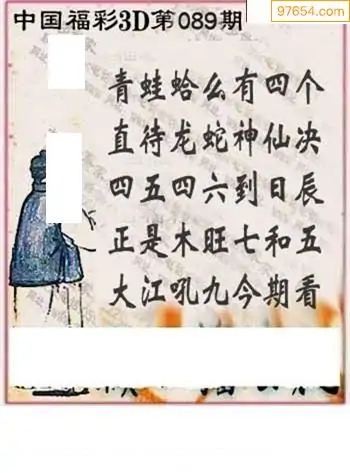 中国福彩3D第089期
97654.com
青蛙蛤么有四个
直待龙蛇神仙决
四五四六到日辰
正是木旺七和五
大江吼九今期看